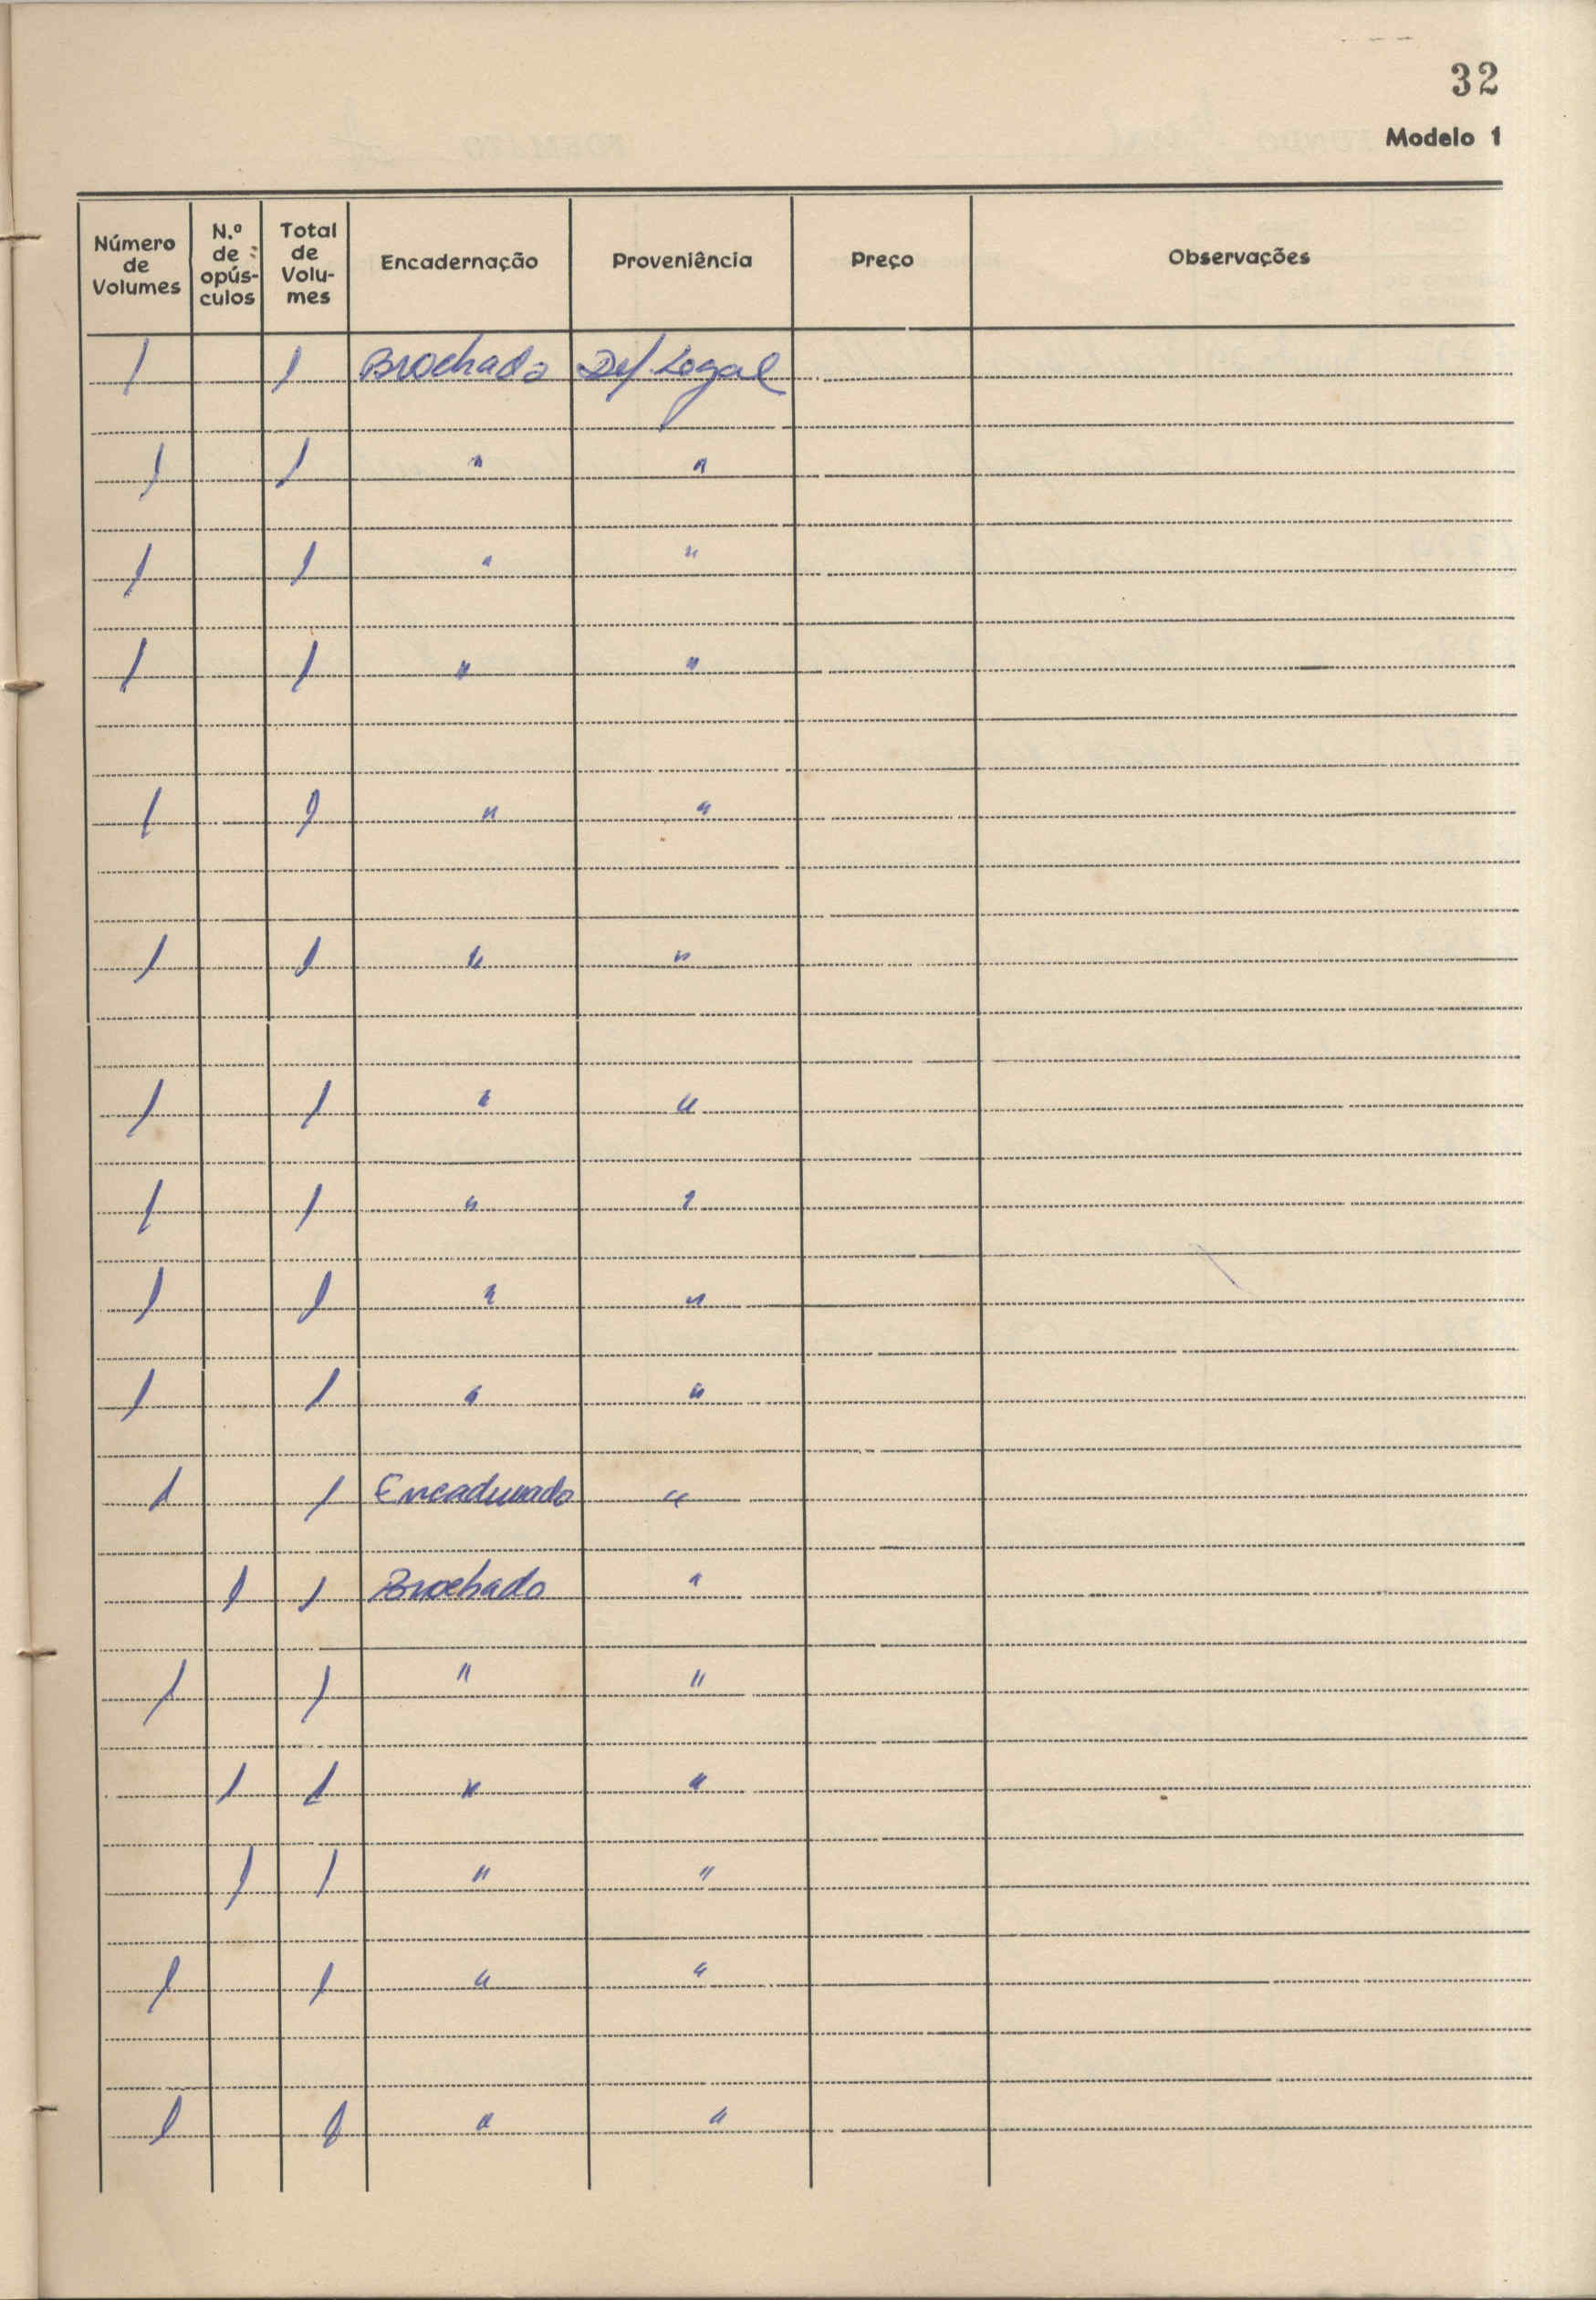 32
Modelo 1
Número de Volumes | N.º de opús-culos | Total de Volu-mes | Encadernação | Proveniência | Preço | Observações
1 | | 1 | Brochado | Dep. Legal
1 | | 1 | " | "
1 | | 1 | " | "
1 | | 1 | " | "
1 | | 1 | " | "
1 | | 1 | " | "
1 | | 1 | " | "
1 | | 1 | " | "
1 | | 1 | " | "
1 | | 1 | " | "
1 | | 1 | Encadernado | "
| 1 | 1 | Brochado | "
1 | | 1 | " | "
| 1 | 1 | " | "
| 1 | 1 | " | "
1 | | 1 | " | "
1 | | 1 | " | "